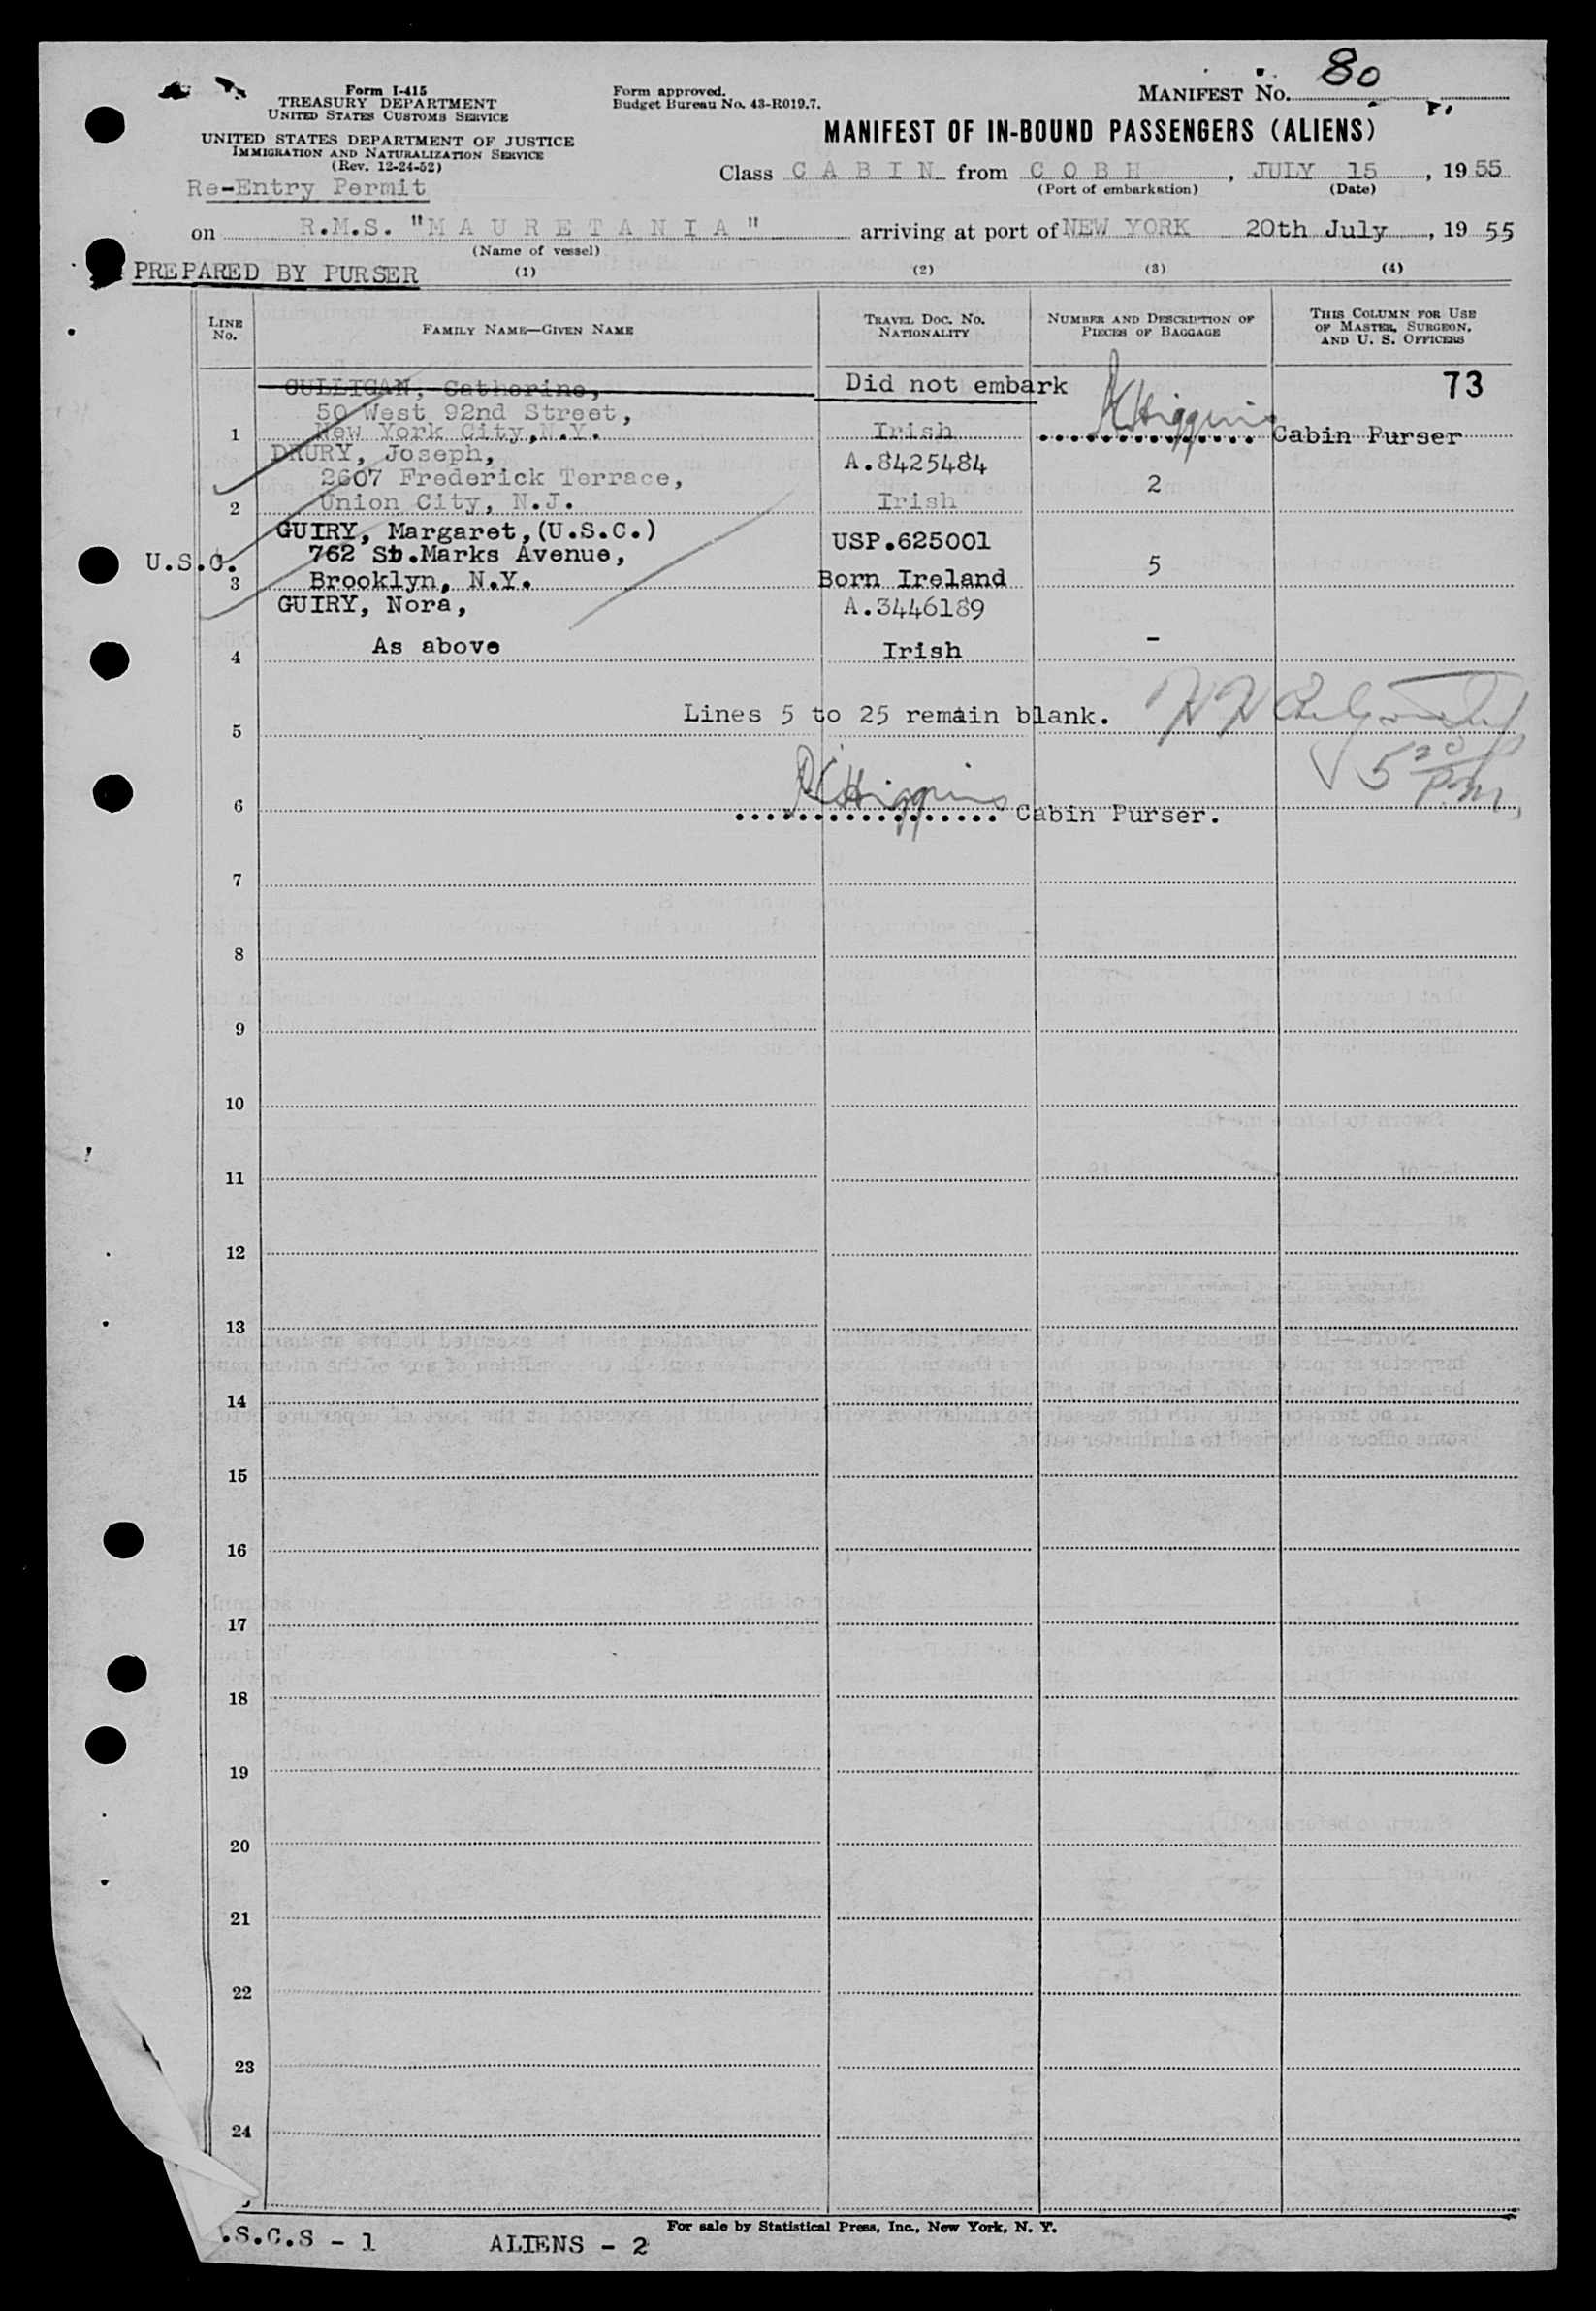 80
Form I-415
TREASURY DEPARTMENT
UNITED STATES CUSTOMS SERVICE
UNITED STATES DEPARTMENT OF JUSTICE
IMMIGRATION AND NATURALIZATION SERVICE
(Rev. 12-24-52)
Re-Entry Permit
Form approved.
Budget Bureau No. 43-R019.7.
MANIFEST No.
MANIFEST OF IN-BOUND PASSENGERS (ALIENS)
Class CABIN from COBH, JULY 15, 1955
(Port of embarkation) (Date)
on R.M.S. "MAURETANIA" arriving at port of NEW YORK 20th July, 1955
(Name of vessel)
PREPARED BY PURSER (1) (2) (3) (4)
LINE No.
FAMILY NAME—GIVEN NAME
TRAVEL DOC. No. NATIONALITY
NUMBER AND DESCRIPTION OF PIECES OF BAGGAGE
THIS COLUMN FOR USE OF MASTER, SURGEON, AND U. S. OFFICERS
CULLIGAN, Catherine, Did not embark 73
50 West 92nd Street,
1 New York City, N.Y. Irish Higgins Cabin Purser
DRURY, Joseph, A.8425484
2607 Frederick Terrace, 2
2 Union City, N.J. Irish
GUIRY, Margaret,(U.S.C.) USP.625001
U.S.C. 762 St.Marks Avenue, 5
3 Brooklyn, N.Y. Born Ireland
GUIRY, Nora, A.3446189
4 As above Irish -
5 Lines 5 to 25 remain blank.
5 20 P.M.
6 Higgins Cabin Purser.
7
8
9
10
11
12
13
14
15
16
17
18
19
20
21
22
23
24
For sale by Statistical Press, Inc., New York, N. Y.
.S.C.S - 1 ALIENS - 2